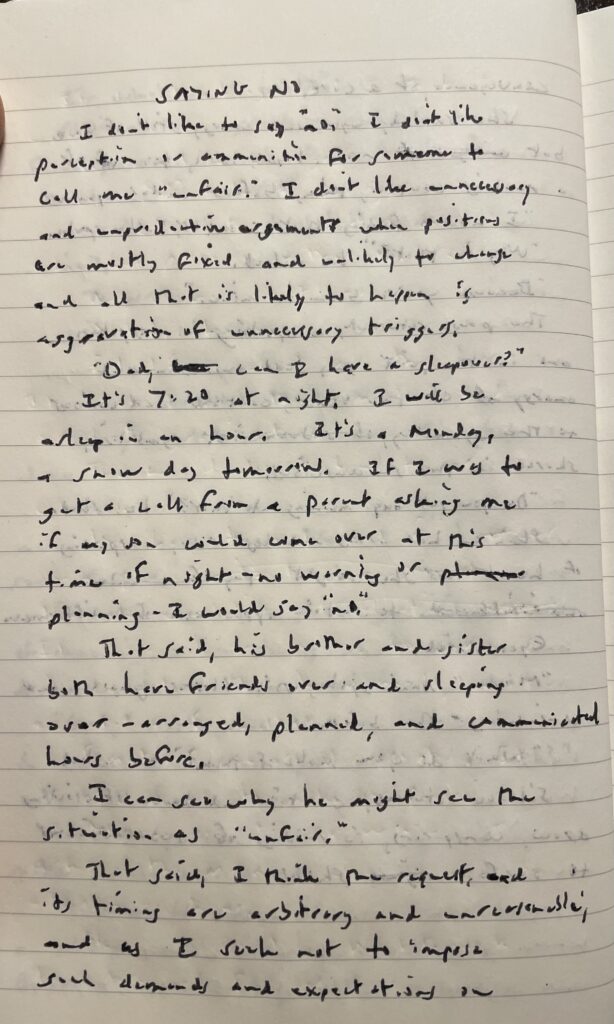 SAYING NO
I don't like to say "no." I don't like
perception or ammunition for someone to
call me "unfair." I don't like unnecessary
and unproductive arguments when positions
are mostly fixed and unlikely to change
and all that is likely to happen is
aggravation of unnecessary triggers.
"Dad, can I have a sleepover?"
It's 7:20 at night. I will be
asleep in an hour. It's a Monday,
a snow day tomorrow. If I was to
get a call from a parent asking me
if my son could come over at this
time of night - no warning or
planning - I would say "no."
That said, his brother and sister
both have friends over and sleeping
over - arranged, planned, and communicated
hours before.
I can see why he might see the
situation as "unfair."
That said, I think the request, and
its timing are arbitrary and unreasonable,
and as I such not to impose
such demands and expectations on